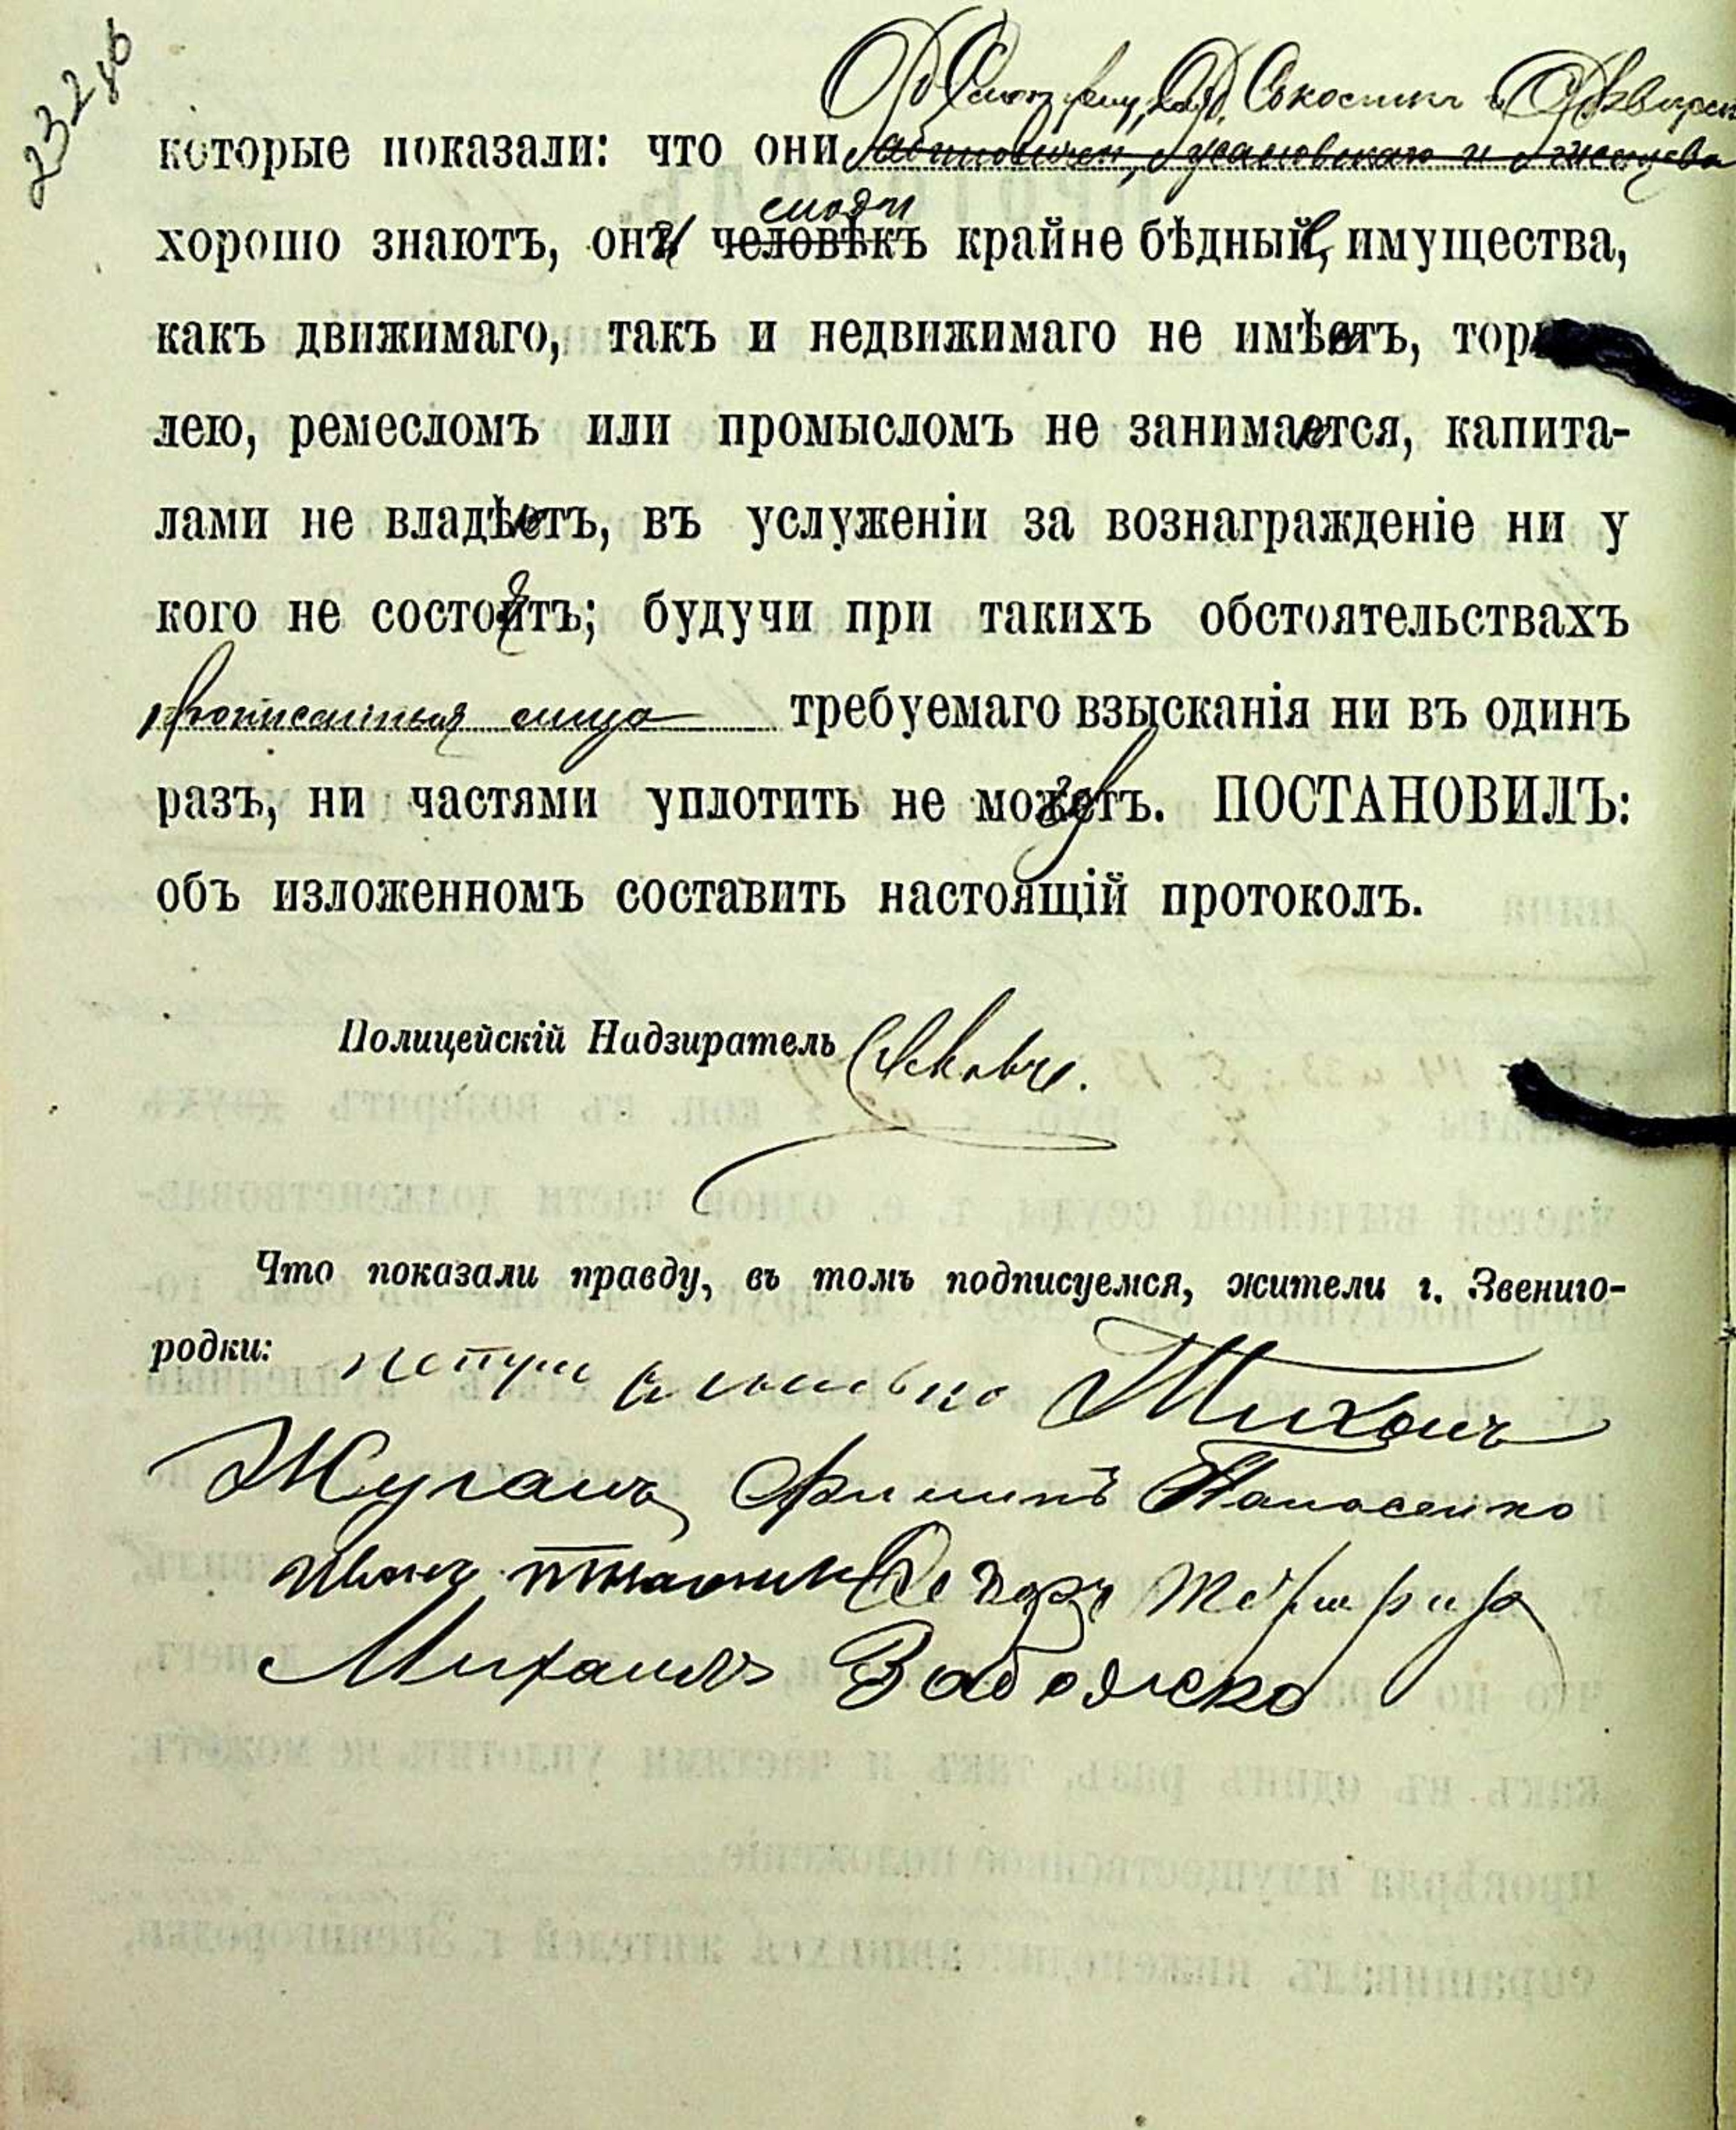 232 об
которые показали: что они
люди
хорошо знаютъ, они человѣкъ крайне бѣдные, имущества,
какъ движимаго, такъ и недвижимаго не имѣютъ, тор
лею, ремесломъ или промысломъ не занимаются, капита-
лами не владѣютъ, въ услуженіи за вознагражденіе ни у
кого не состоятъ; будучи при такихъ обстоятельствахъ
прописанныя лица требуемаго взысканія ни въ одинъ
разъ, ни частями уплотить не могутъ. ПОСТАНОВИЛЪ:
объ изложенномъ составить настоящій протоколъ.
Полицейскій Надзиратель
Что показали правду, въ томъ подписуемся, жители г. Звениго-
родки: Тихонъ
Жуганъ Филипъ Панасенко
Иванъ
Михаилъ